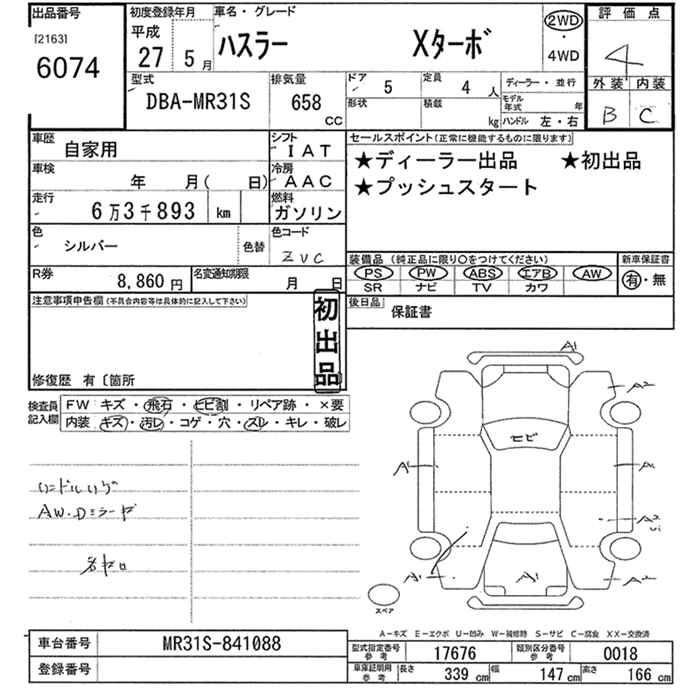 出品番号
[2163]
6074
初度登録年月
平成
27 5月
車名・グレード
ハスラー Xターボ
2WD
・
4WD
評価点
4
外装 内装
B C
型式
DBA-MR31S
排気量
658
CC
ドア 5
定員 4人
形状
積載 kg
ディーラー・並行
モデル年式 年
ハンドル 左・右
車歴
自家用
シフト
IAT
車検
年 月( 日)
冷房
AAC
走行
6万3千893 km
燃料
ガソリン
色
シルバー
色替
色コード
ZVC
R券
8,860円
名変通知期限
月 日
セールスポイント(正常に機能するものに限ります)
★ディーラー出品 ★初出品
★プッシュスタート
装備品 (純正品に限り○をつけてください)
PS PW ABS エアB AW
SR ナビ TV カワ
新車保証書
有・無
後日品
保証書
注意事項申告欄(不具合内容等は具体的に記入して下さい)
初出品
修復歴 有〔箇所
検査員記入欄
FW キズ・飛石・ヒビ割・リペア跡・×要
内装 キズ・汚レ・コゲ・穴・スレ・キレ・破レ
AW.Dミラーキズ
A1
A2
ヒビ
A1
A1
A2
A1
A1
A2
スペア
A-キズ E-エクボ U-凹み W-補修跡 S-サビ C-腐食 XX-交換済
車台番号
MR31S-841088
登録番号
型式指定番号 参考
17676
類別区分番号 参考
0018
車庫証明用 参考
長さ 339cm
幅 147cm
高さ 166cm